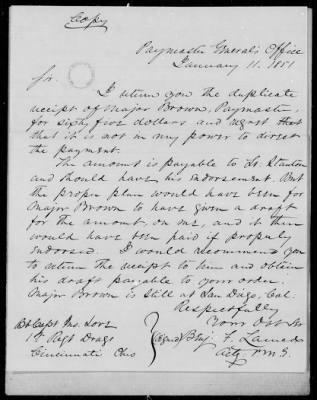 Copy
Paymaster General's Office
January 11. 1851
Sir.
I return you the duplicate
receipt of Major Brown, Paymaster,
for sixty five dollars and regret that
that it is not in my power to direct
the payment.
The amount is payable to Lt. Stanton
and should have his endorsement. But
the proper plan would have been for
Major Brown to have given a draft
for the amount, on me, and it then
would have been paid if properly
endorsed. I would recommend you
to return the receipt to him and obtain
his draft payable to your order.
Major Brown is still at San Diego, Cal.
Respectfully
Your Obt Sr
Bt Capt Jno. Love
1st Regt Drags
Cincinnati Ohio
(signed) Benj. F. Larned
Actg PMG.